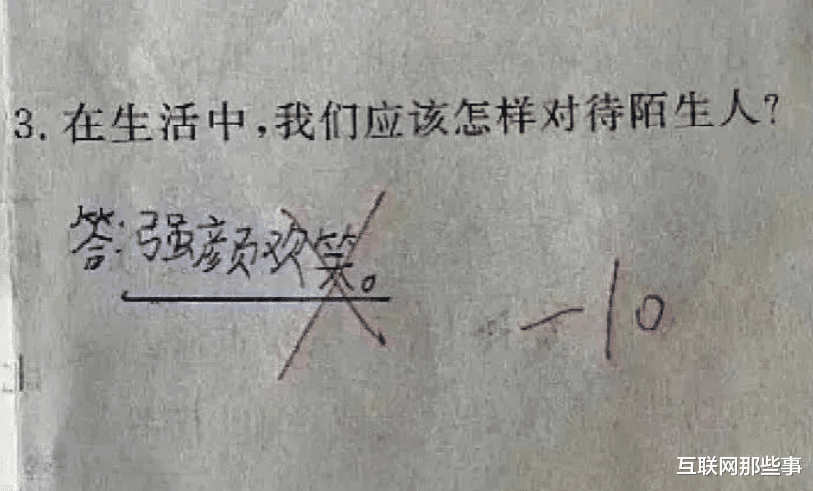 3. 在生活中，我们应该怎样对待陌生人？
答：强颜欢笑。
-10
互联网那些事